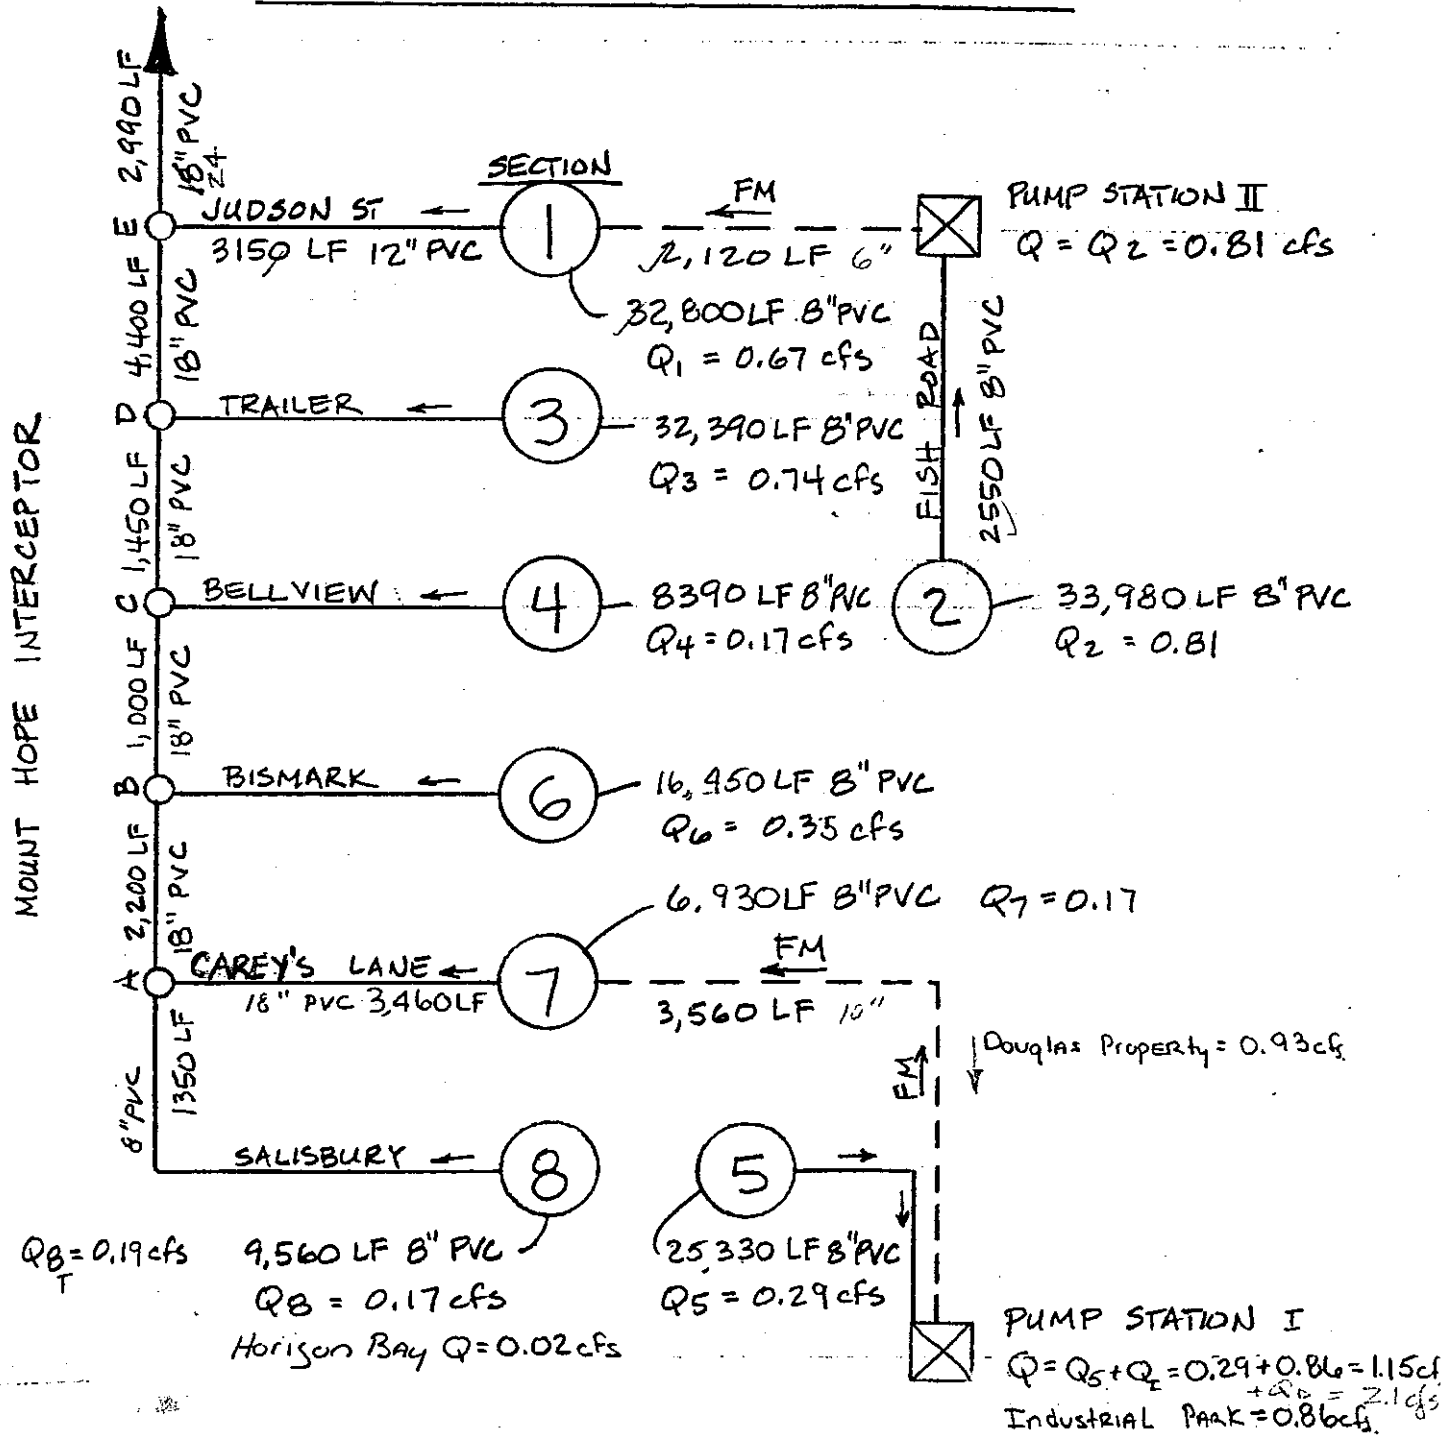 MOUNT HOPE INTERCEPTOR
2,990 LF
18" PVC
24
E
JUDSON ST
3150 LF 12" PVC
SECTION
1
FM
2,120 LF 6"
PUMP STATION II
Q = Q2 = 0.81 cfs
32,800 LF 8" PVC
Q1 = 0.67 cfs
4,400 LF
18" PVC
D
TRAILER
3
32,390 LF 8" PVC
Q3 = 0.74 cfs
FISH ROAD
2550 LF 8" PVC
1,450 LF
18" PVC
C
BELLVIEW
4
8390 LF 8" PVC
Q4 = 0.17 cfs
2
33,980 LF 8" PVC
Q2 = 0.81
1,000 LF
18" PVC
B
BISMARK
6
16,950 LF 8" PVC
Q6 = 0.35 cfs
2,200 LF
18" PVC
6,930 LF 8" PVC Q7 = 0.17
A
CAREY'S LANE
18" PVC 3,460 LF
7
FM
3,560 LF 10"
FM
Douglas Property = 0.93 cfs
1350 LF
8" PVC
SALISBURY
8
5
Q8T = 0.19 cfs
9,560 LF 8" PVC
Q8 = 0.17 cfs
Horizon Bay Q = 0.02 cfs
25,330 LF 8" PVC
Q5 = 0.29 cfs
PUMP STATION I
Q = Q5 + QI = 0.29 + 0.86 = 1.15 cf
+ QD = 2.1 cfs
Industrial Park = 0.86 cfs.